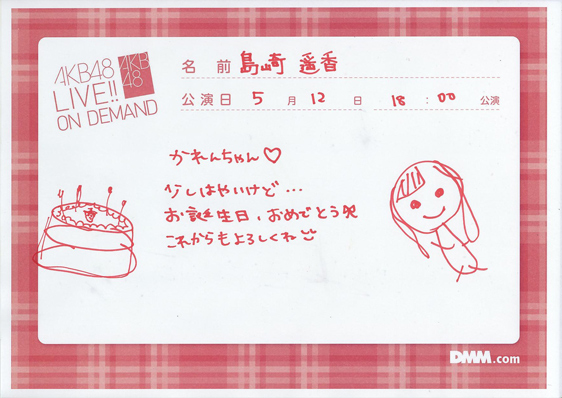 AKB48
LIVE!!
ON DEMAND
AKB
48
名前 島崎 遥香
公演日 5月12日 18:00 公演
かれんちゃん♡
少しはやいけど...
お誕生日、おめでとう
これからもよろしくね
DMM.com